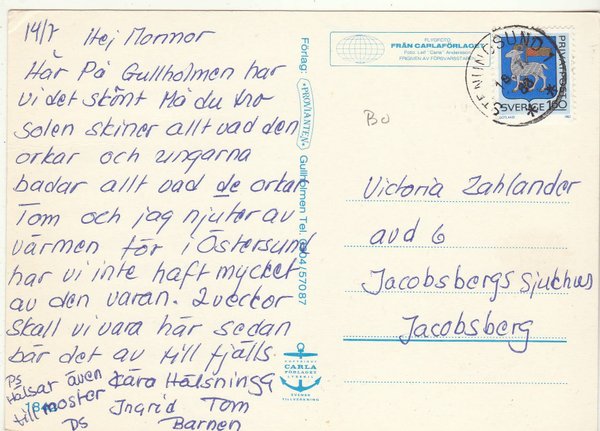 14/7 Hej Mormor
Här På Gullholmen har
vi det skönt Må du tro
solen skiner allt vad den
orkar och ungarna
badar allt vad de orkar
Tom och jag njuter av
värmen för i Östersund
har vi inte haft mycket
av den varan. 2 veckor
skall vi vara här sedan
bär det av till fjälls.
Kära Hälsninga
Ingrid Tom
Barnen
PS
Hälsar även
till moster
DS
184
Förlag: «PROVIANTEN» Gullholmen Tel. 0304/570 87
FLYGFOTO
FRÅN CARLAFÖRLAGET
Foto: Leif "Carla" Andersson
FRIGIVEN AV FÖRSVARSSTABEN
COPYRIGHT
CARLA
FÖRLAGET
LYSEKIL
SVENSK
TILLVERKNING
STENUNGSUND 1
PRIVATPOST
SVERIGE 160
GOTLAND
1982
BO
Victoria Zahlander
avd 6
Jacobsbergs Sjukhus
Jacobsberg